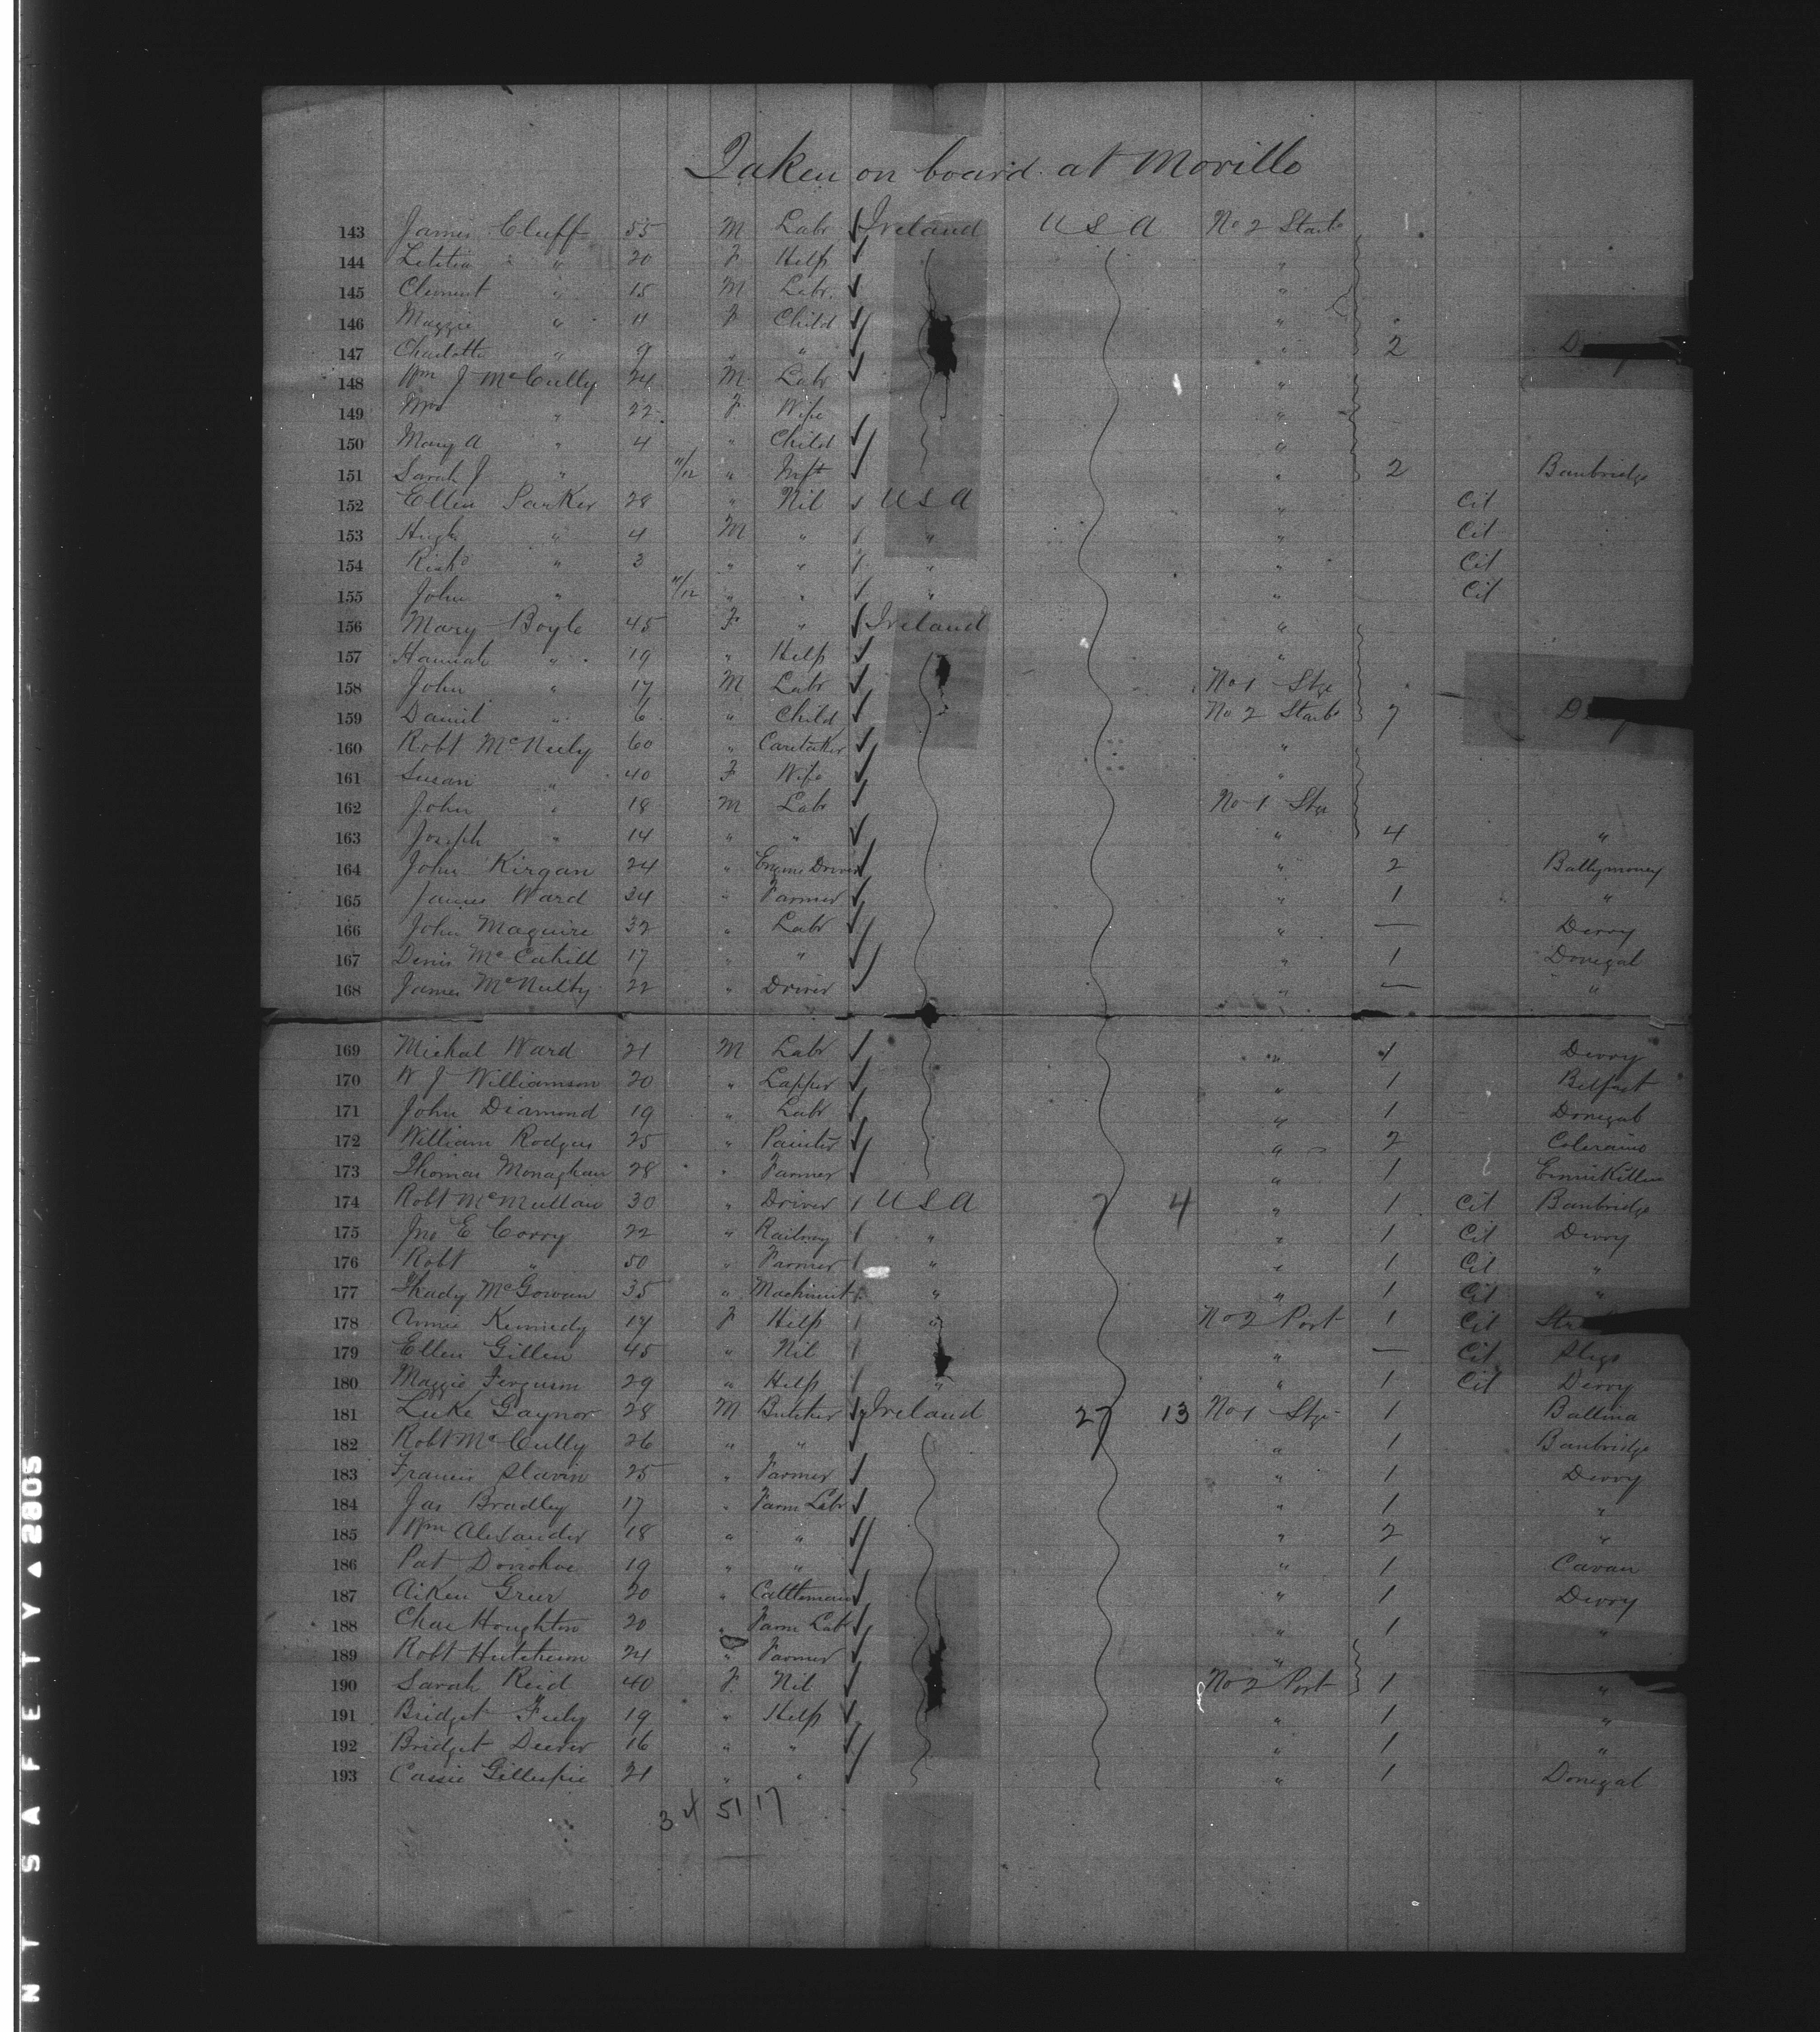 Taken on board at Moville
143 James Cluff 55 M Labr Ireland U S A No 2 Starb
144 Letitia " " 20 F Help "
145 Clement " 15 M Labr. "
146 Maggie " 11 F Child "
147 Charlotte " 9 " " " 2
148 Wm J McCully 24 M Labr "
149 Mrs " 22 F Wife "
150 Mary A " 4 " Child "
151 Sarah J " 11/12 " Inft " 2 Banbridge
152 Ellen Parker 28 " Nil U S A " Cit
153 Hugh " 4 M " " " Cit
154 Richd " 3 " " " " Cit
155 John " 11/12 " " " " Cit
156 Mary Boyle 45 F " Ireland "
157 Hannah " 19 " Help "
158 John " 17 M Labr No 1 Stge
159 Daniel " 6 " Child No 2 Starb 7
160 Robt McNeely 60 " Caretaker "
161 Susan " 40 F Wife "
162 John " 18 M Labr No 1 Stge
163 Joseph " 14 " " " 4 "
164 John Kirgan 24 " Engine Driver " 2 Ballymoney
165 James Ward 34 " Farmer " 1 "
166 John Maguire 32 " Labr " — Derry
167 Denis McCahill 17 " " " 1 Donegal
168 James McNulty 22 " Driver " — "
169 Michal Ward 21 M Labr " 1 Derry
170 W J Williamson 20 " Lapper " 1 Belfast
171 John Diamond 19 " Labr " 1 Donegal
172 William Rodgers 25 " Painter " 2 Coleraine
173 Thomas Monaghan 28 " Farmer " 1 Enniskillen
174 Robt McMullan 30 " Driver U S A 7 4 " 1 Cit Banbridge
175 Jno E Corry 22 " Railway " " 1 Cit Derry
176 Robt " 50 " Farmer " " 1 Cit "
177 Thady McGowan 35 " Machinist " " 1 Cit "
178 Annie Kennedy 17 F Help " No 2 Port 1 Cit
179 Ellen Gillen 45 " Nil " — Cit Sligo
180 Maggie Ferguson 29 " Help " " 1 Cit Derry
181 Luke Gaynor 28 M Butcher Ireland 27 13 No 1 Stge 1 Ballina
182 Robt McCully 26 " " " 1 Banbridge
183 Francis Slavin 25 " Farmer " 1 Derry
184 Jas Bradley 17 " Farm Labr " 1 "
185 Wm Alexander 18 " " " 2 "
186 Pat Donohoe 19 " " " 1 Cavan
187 Aiken Greer 20 " Cattleman " 1 Derry
188 Chas Houghton 20 " Farm Labr " 1 "
189 Robt Hutcheson 24 " Farmer "
190 Sarah Reid 40 F Nil No 2 Port 1 "
191 Bridget Feely 19 " Help " 1 "
192 Bridget Deever 16 " " " 1 "
193 Cassie Gillespie 21 " " " 1 Donegal
51 17
N T S A F E T Y ▲ 2805